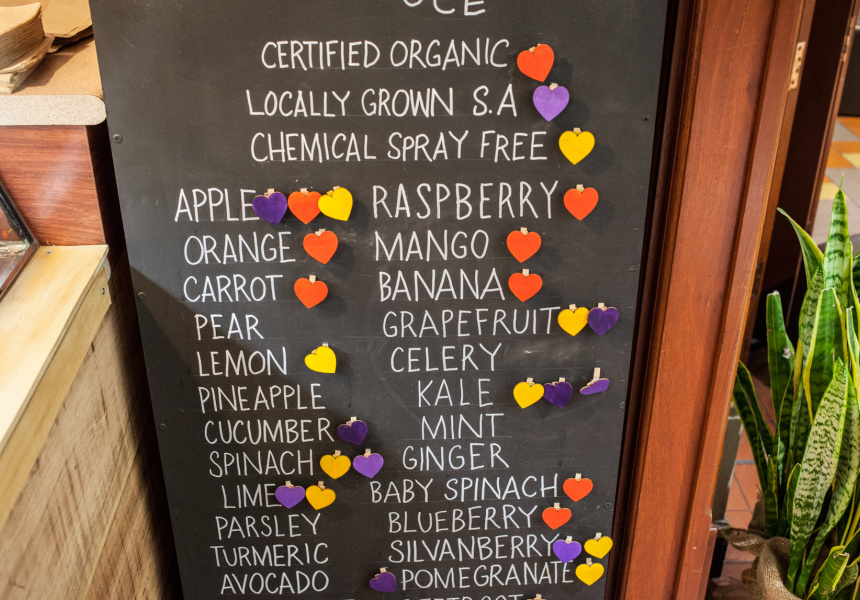 CERTIFIED ORGANIC
LOCALLY GROWN S.A
CHEMICAL SPRAY FREE
APPLE
ORANGE
CARROT
PEAR
LEMON
PINEAPPLE
CUCUMBER
SPINACH
LIME
PARSLEY
TURMERIC
AVOCADO
RASPBERRY
MANGO
BANANA
GRAPEFRUIT
CELERY
KALE
MINT
GINGER
BABY SPINACH
BLUEBERRY
SILVANBERRY
POMEGRANATE